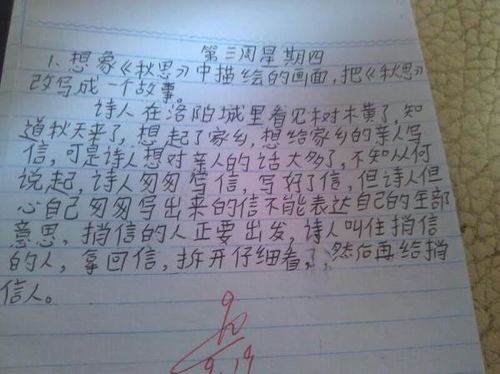 第三周星期四
1.想象《秋思》中描绘的画面,把《秋思》
改写成一个故事。
诗人在洛阳城里看见树木黄了,知
道秋天来了,想起了家乡,想给家乡的亲人写
信,可是诗人想对亲人的话太多了,不知从何
说起,诗人匆匆写信,写好了信,但诗人但
心自己匆匆写出来的信不能表达自己的全部
意思,捎信的人正要出发,诗人叫住捎信
的人,拿回信,拆开仔细看,然后再给捎
信人。
9.19